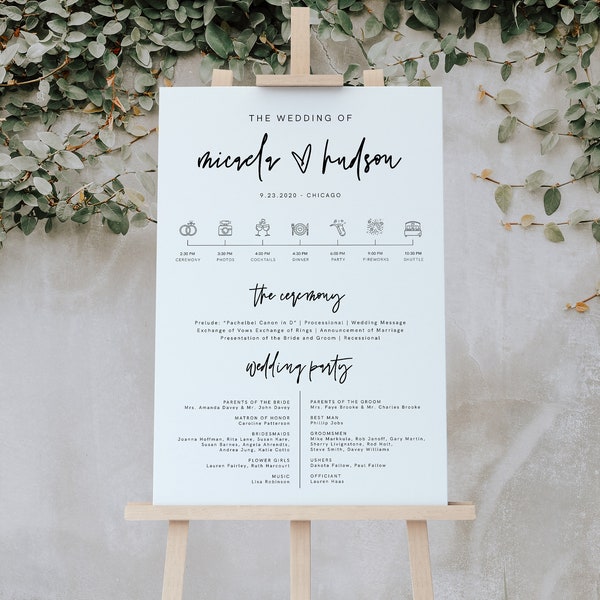 THE WEDDING OF
micaela hudson
9.23.2020 - CHICAGO
2:30 PM 3:30 PM 4:00 PM 4:30 PM 6:00 PM 9:00 PM 10:30 PM
CEREMONY PHOTOS COCKTAILS DINNER PARTY FIREWORKS SHUTTLE
the ceremony
Prelude: "Pachelbel Canon in D" | Processional | Wedding Message
Exchange of Vows Exchange of Rings | Announcement of Marriage
Presentation of the Bride and Groom | Recessional
wedding party
PARENTS OF THE BRIDE
Mrs. Amanda Davey & Mr. John Davey
MATRON OF HONOR
Caroline Patterson
BRIDESMAIDS
Joanna Hoffman, Rita Lane, Susan Kare,
Susan Barnes, Angela Ahrendts,
Andrea Jung, Katie Cotto
FLOWER GIRLS
Lauren Fairley, Ruth Harcourt
MUSIC
Lisa Robinson
PARENTS OF THE GROOM
Mrs. Faye Brooke & Mr. Charles Brooke
BEST MAN
Phillip Jobs
GROOMSMEN
Mike Markkula, Rob Janoff, Gary Martin,
Sherry Livignstone, Rod Holt,
Steve Smith, Davey Williams
USHERS
Dakota Fallow, Paul Fallow
OFFICIANT
Lauren Haas